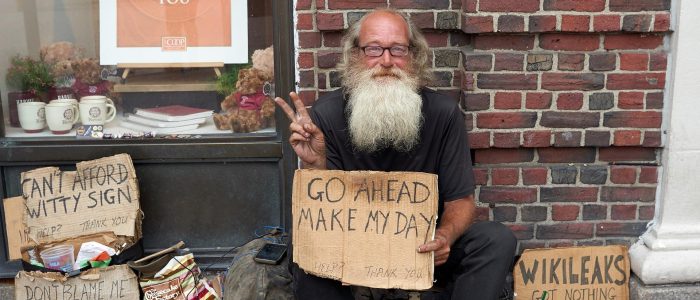 YOU
COOP
CAN'T AFFORD
WITTY SIGN
HELP? THANK YOU
DON'T BLAME ME
GO AHEAD
MAKE MY DAY
HELP? THANK YOU
WIKILEAKS
GOT NOTHING